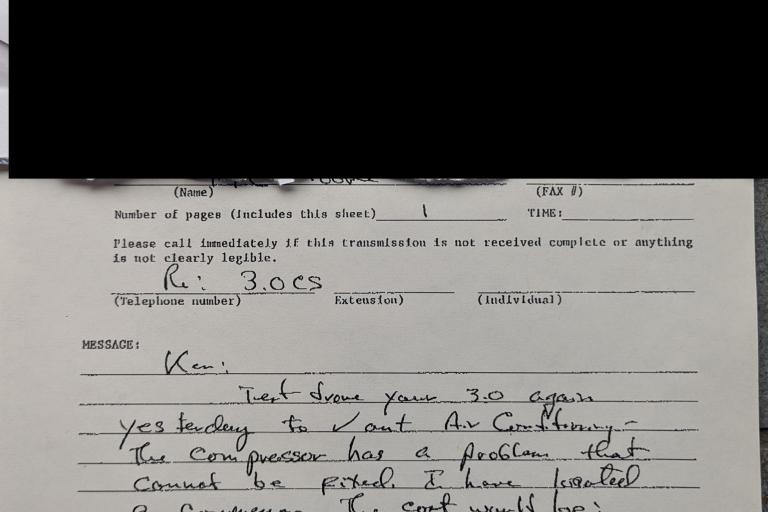 (Name) (FAX #)
Number of pages (Includes this sheet) 1 TIME:
Please call immediately if this transmission is not received complete or anything
is not clearly legible.
Re: 3.0 CS
(Telephone number) Extension) (Individual)
MESSAGE:
Ken:
Test drove your 3.0 again
yesterday to √ out Air Conditioning -
The compressor has a problem that
cannot be fixed. I have located
a The cost would be: